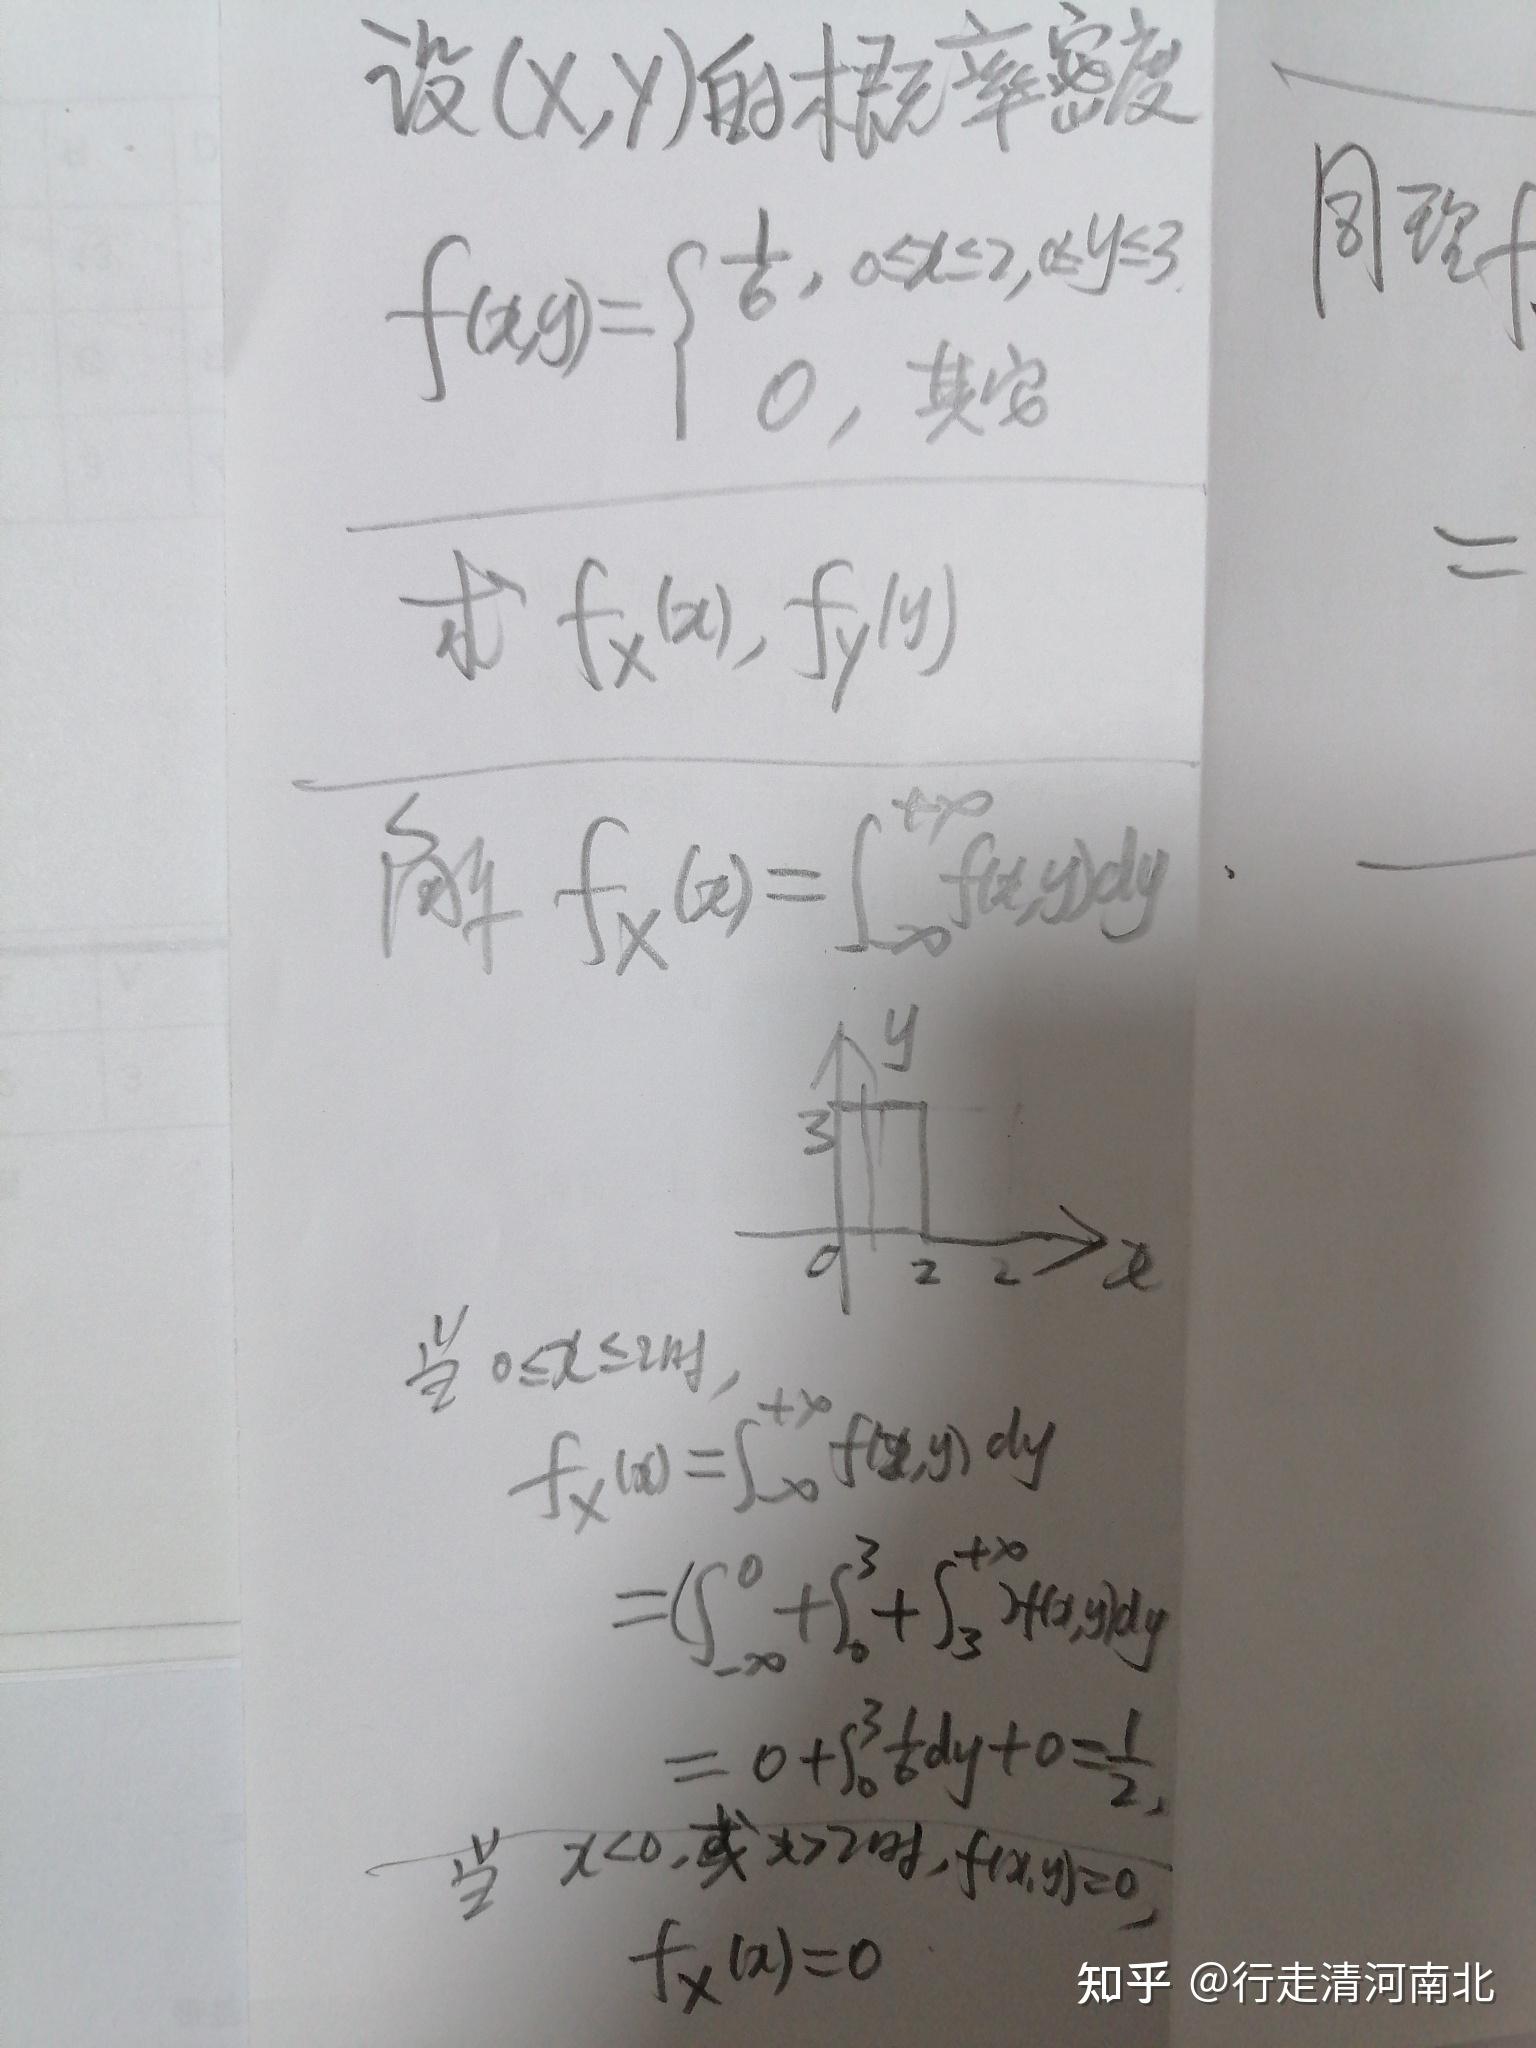 设(X,Y)的概率密度
f(x,y)={1/6, 0≤x≤2, 0≤y≤3
0, 其它
求 f_X(x), f_Y(y)
解 f_X(x)=∫_{-∞}^{+∞} f(x,y)dy
y
3
0 2 2 x
当 0≤x≤2时,
f_X(x)=∫_{-∞}^{+∞} f(x,y)dy
=(∫_{-∞}^{0}+∫_{0}^{3}+∫_{3}^{+∞})f(x,y)dy
=0+∫_{0}^{3} 1/6 dy+0=1/2,
当 x<0,或x>2时,f(x,y)=0,
f_X(x)=0
同理f
=
知乎 @行走清河南北